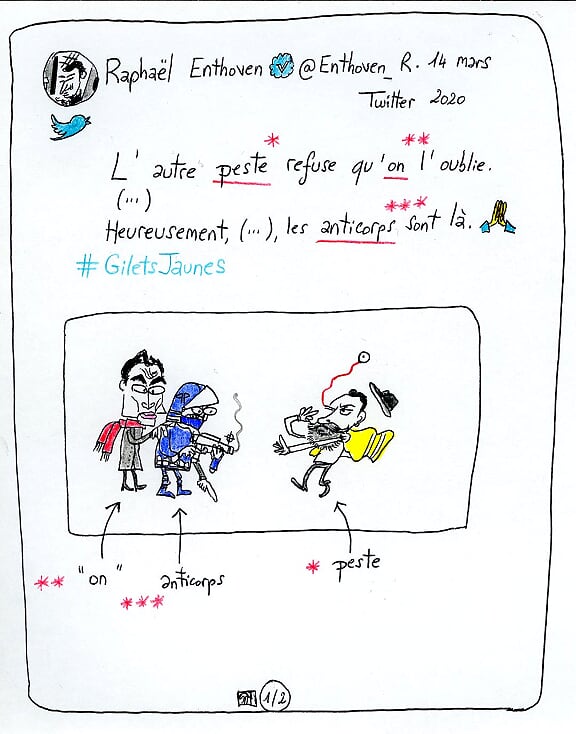 Raphaël Enthoven @Enthoven_R. 14 mars
Twitter 2020
*
**
L'autre peste refuse qu'on l'oublie.
(...)
***
Heureusement, (...), les anticorps sont là.
#GiletsJaunes
** "on"
anticorps
***
* peste
1/2